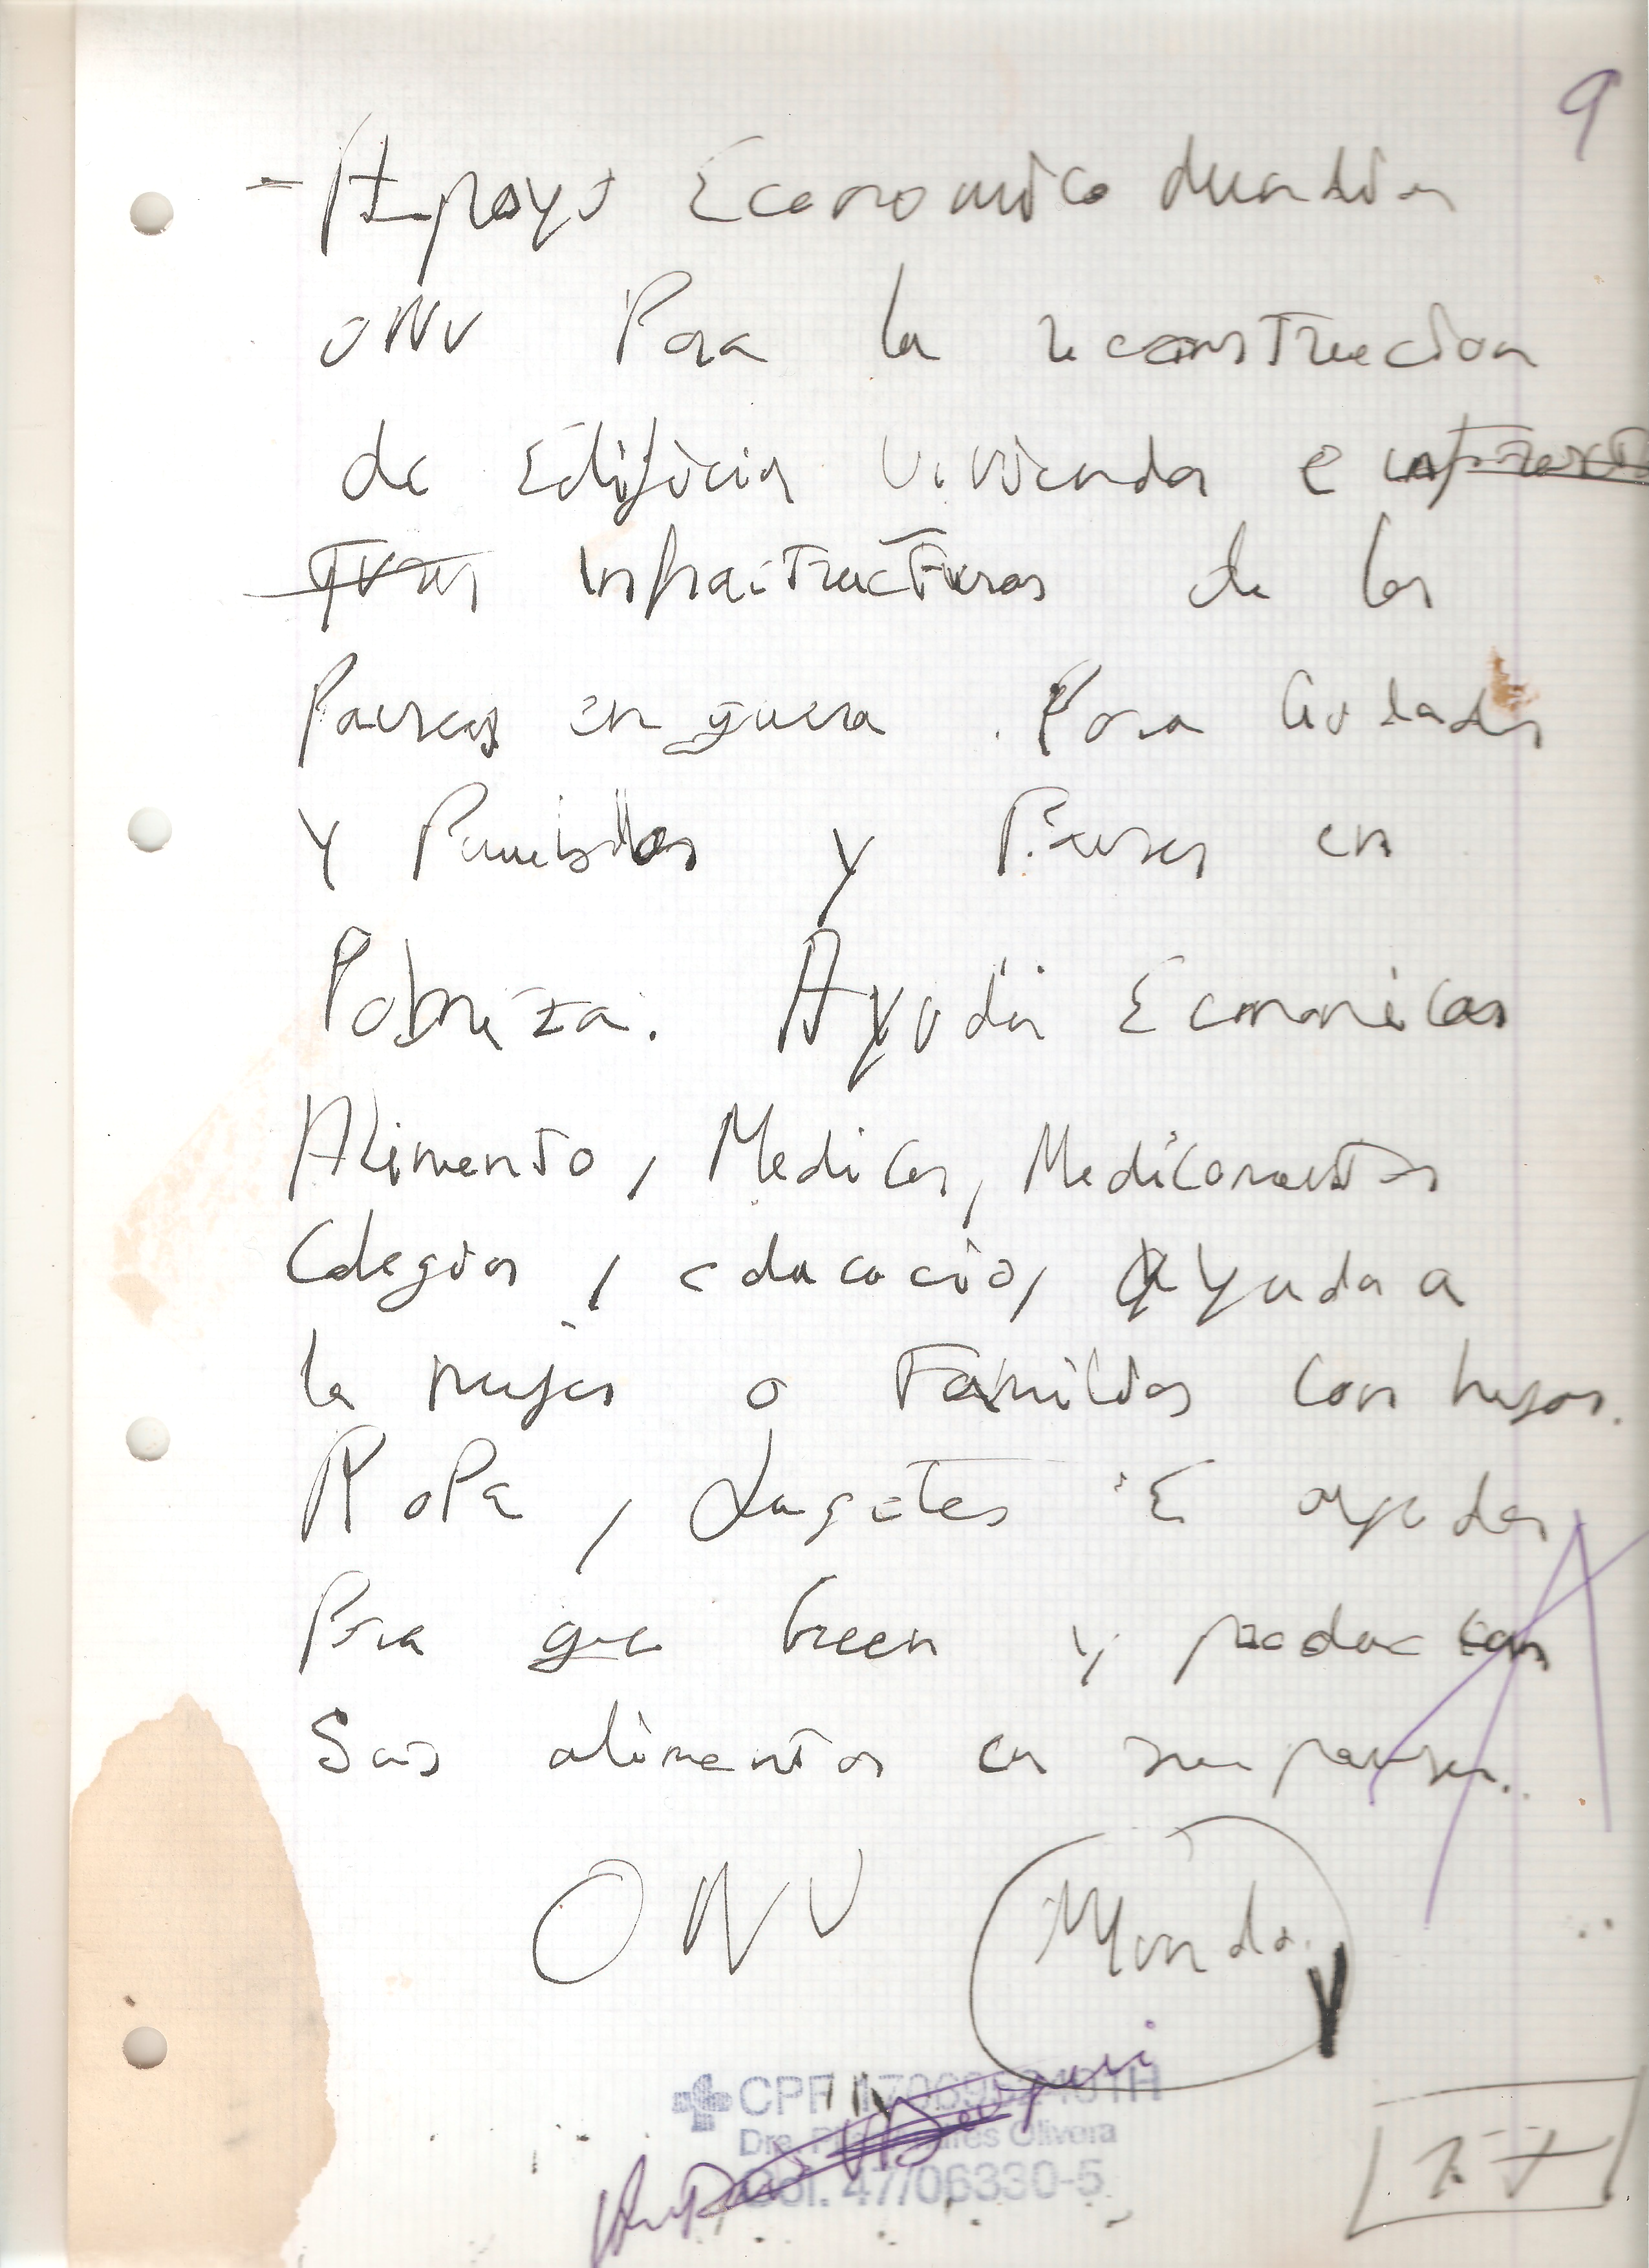 9
- Apoyo Economico Mundial
ONU Para la reconstruccion
de Edificios Viviendas e infraest
turas infraestructuras de los
Paises en guerra. Para Ciudades
y Pueblos y Paises en
Pobreza. Ayudas Economicas
Alimento, Medicos, Medicamentos
Colegios, educacio, Ayuda a
la mujer o Familias con hijos.
Ropa, Juguetes E ayudas
Para que Creen y produzcan
Sus alimentos en su paises.
ONU Mundo
CPF
Olivera
Col. 47/06330-5